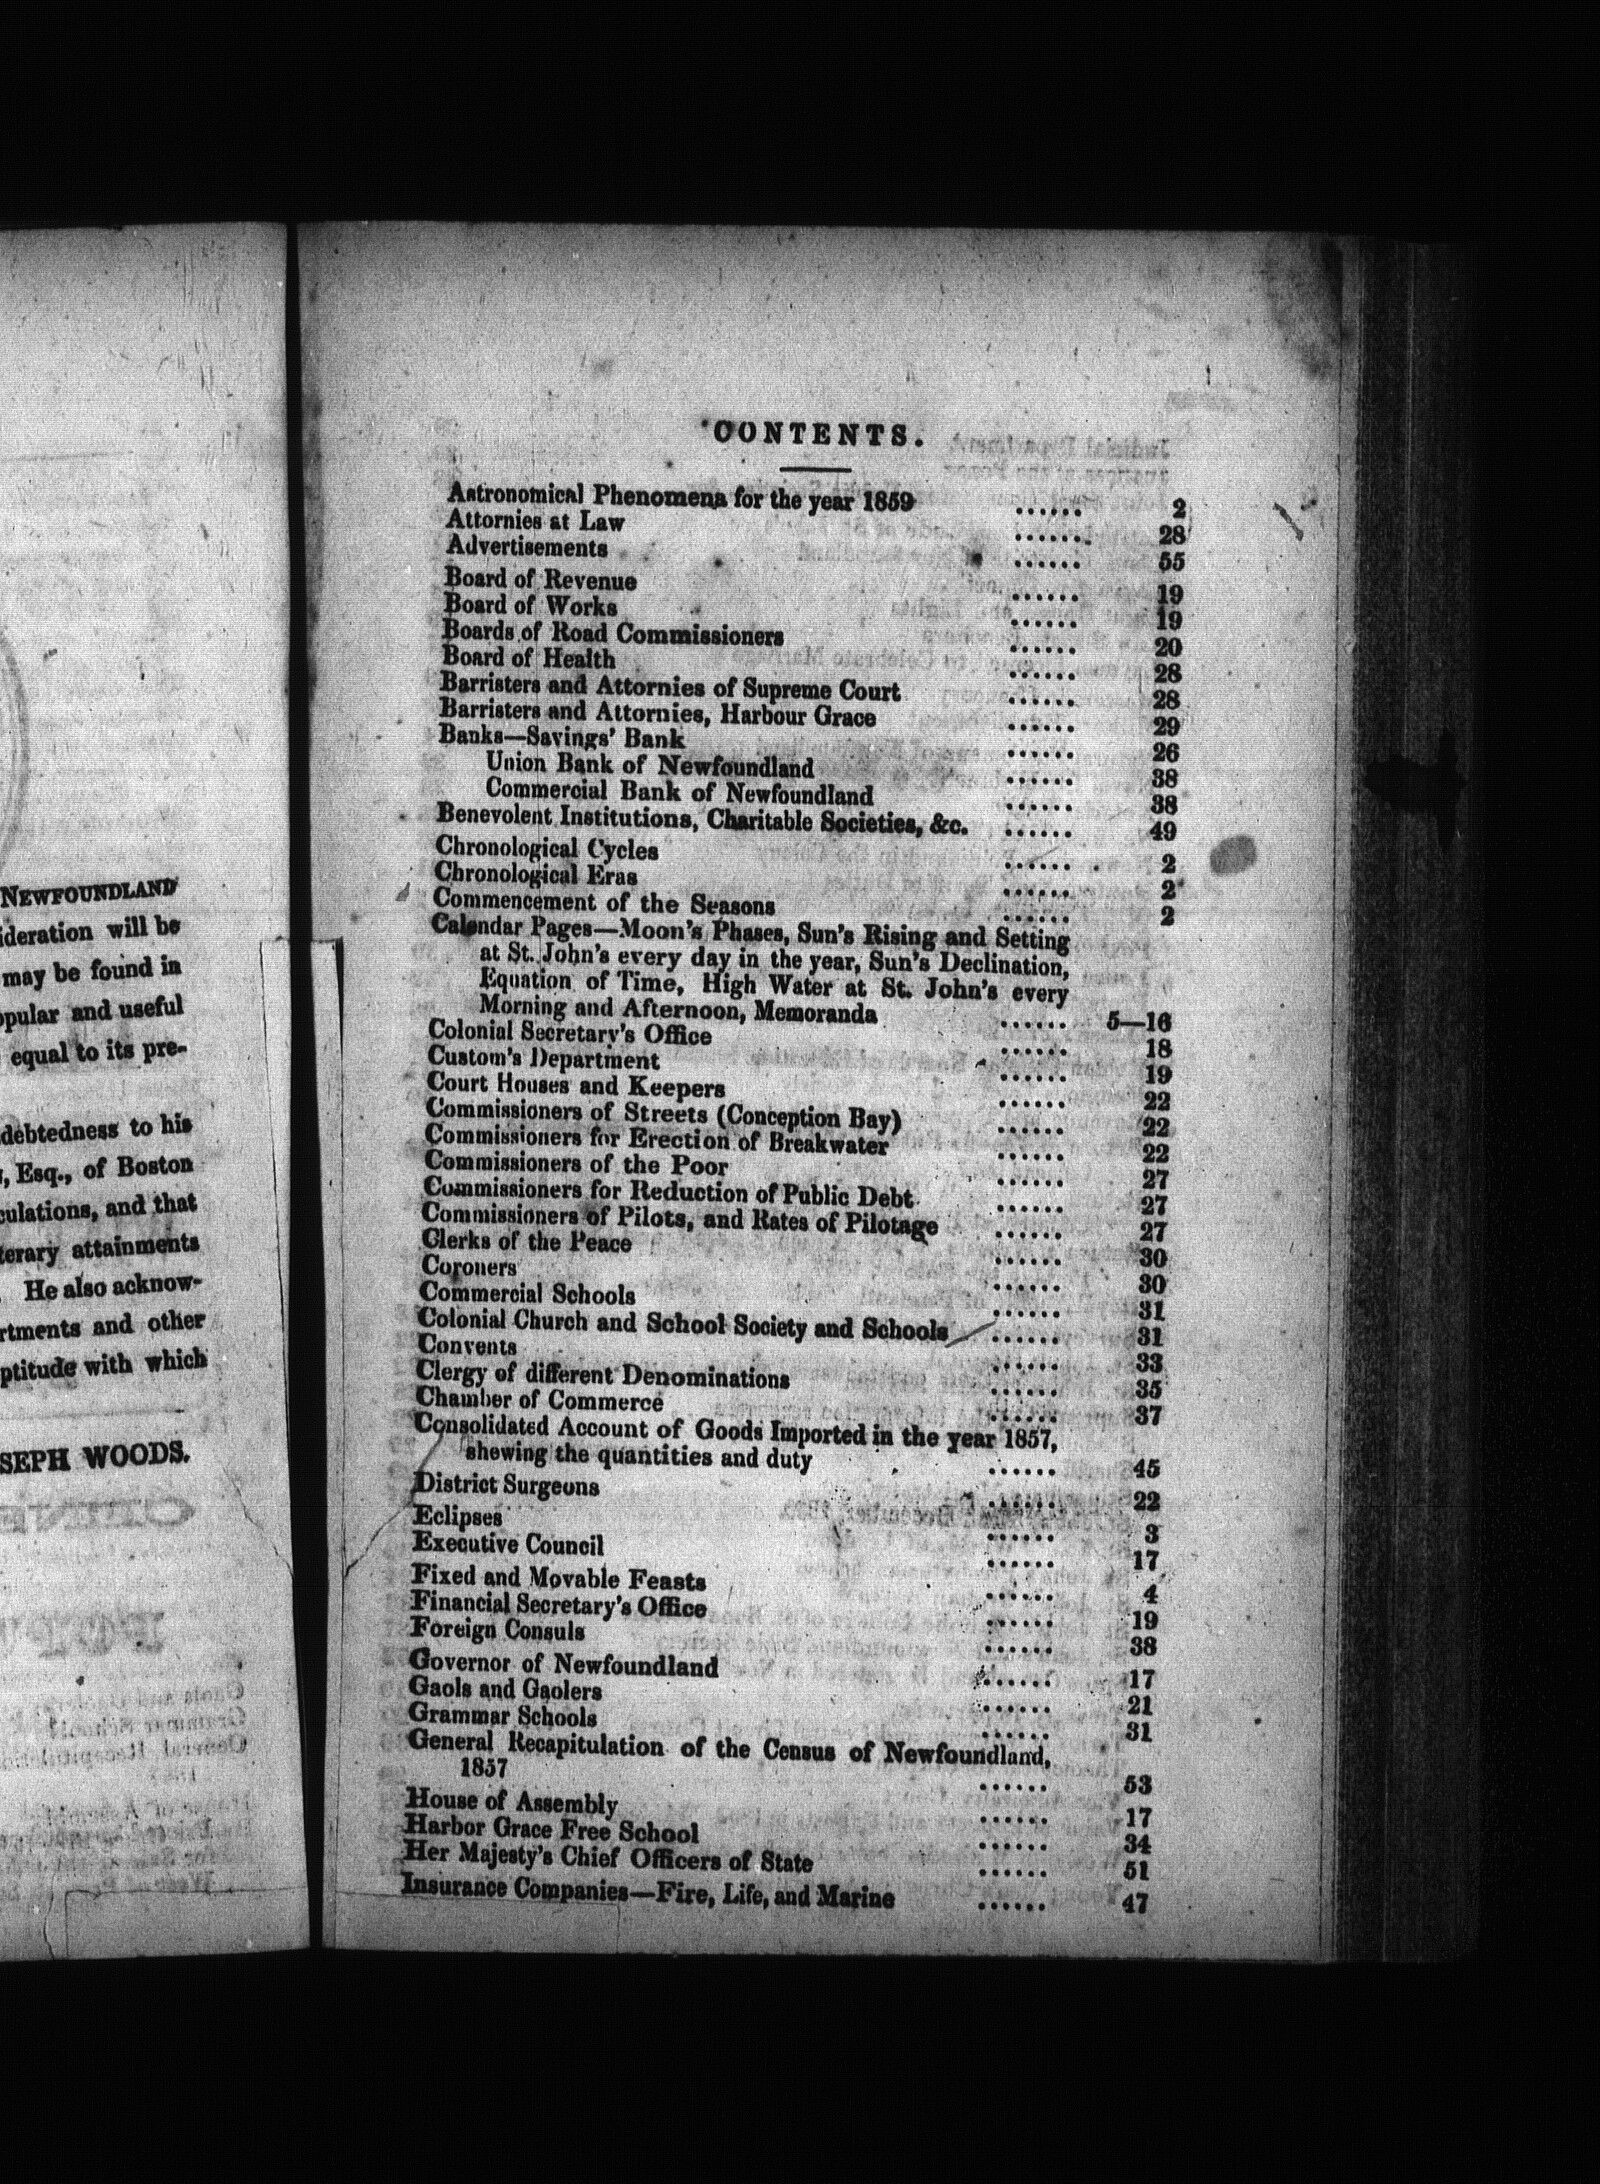 NEWFOUNDLAND
ideration will be
may be found in
opular and useful
equal to its pre-
debtedness to his
, Esq., of Boston
culations, and that
terary attainments
He also acknow-
rtments and other
ptitude with which
SEPH WOODS.
CONTENTS.
Astronomical Phenomena for the year 1859 ...... 2
Attornies at Law ...... 28
Advertisements ...... 55
Board of Revenue ...... 19
Board of Works ...... 19
Boards of Road Commissioners ...... 20
Board of Health ...... 28
Barristers and Attornies of Supreme Court ...... 28
Barristers and Attornies, Harbour Grace ...... 29
Banks—Savings' Bank ...... 26
Union Bank of Newfoundland ...... 38
Commercial Bank of Newfoundland ...... 38
Benevolent Institutions, Charitable Societies, &c. ...... 49
Chronological Cycles ...... 2
Chronological Eras ...... 2
Commencement of the Seasons ...... 2
Calendar Pages—Moon's Phases, Sun's Rising and Setting
at St. John's every day in the year, Sun's Declination,
Equation of Time, High Water at St. John's every
Morning and Afternoon, Memoranda ...... 5—16
Colonial Secretary's Office ...... 18
Custom's Department ...... 19
Court Houses and Keepers ...... 22
Commissioners of Streets (Conception Bay) ...... 22
Commissioners for Erection of Breakwater ...... 22
Commissioners of the Poor ...... 27
Commissioners for Reduction of Public Debt ...... 27
Commissioners of Pilots, and Rates of Pilotage ...... 27
Clerks of the Peace ...... 30
Coroners ...... 30
Commercial Schools ...... 31
Colonial Church and School Society and Schools ...... 31
Convents ...... 33
Clergy of different Denominations ...... 35
Chamber of Commerce ...... 37
Consolidated Account of Goods Imported in the year 1857,
shewing the quantities and duty ...... 45
District Surgeons ...... 22
Eclipses ...... 3
Executive Council ...... 17
Fixed and Movable Feasts ...... 4
Financial Secretary's Office ...... 19
Foreign Consuls ...... 38
Governor of Newfoundland ...... 17
Gaols and Gaolers ...... 21
Grammar Schools ...... 31
General Recapitulation of the Census of Newfoundland,
1857 ...... 53
House of Assembly ...... 17
Harbor Grace Free School ...... 34
Her Majesty's Chief Officers of State ...... 51
Insurance Companies—Fire, Life, and Marine ...... 47